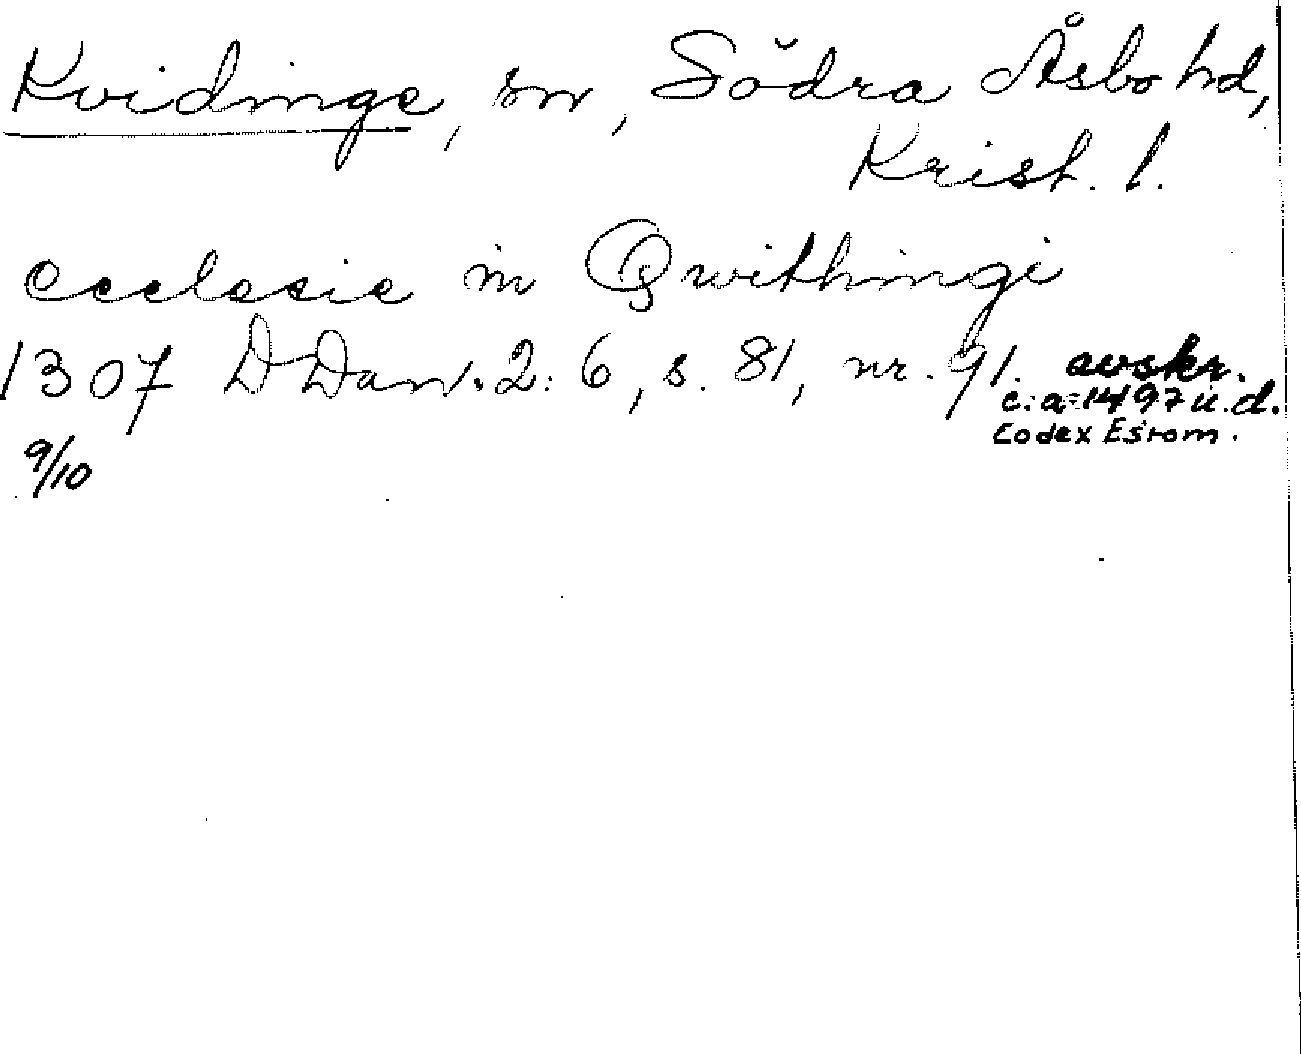 Kvidinge, sn, Södra Åsbo hd,
Krist. l.
ecclesie in Qwithingi
1307 DDan. 2:6, s. 81, nr. 91. avskr.
c:a 1497 u.d.
Codex Esrom.
9/10